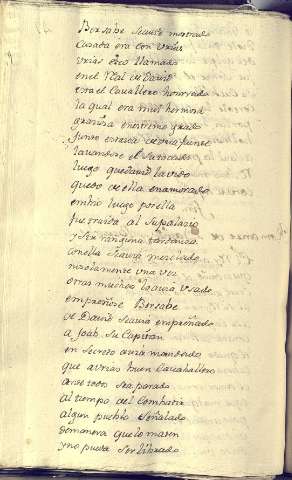 Bersabe
Casada era con Urias
Urias era llamado
en el Real de David
era el Cavallero honrrado
la qual era muy hermosa
graciosa en estremo grado
junto estava de una fuente
lavandose el
luego que David la vido
quedo de ella enamorado
embio luego por ella
fue traida al Su palacio
y sin ninguna tardança
con ella
no solamente una vez
otras muchas usado
empreñose Bersabe
de David empreñado
a Joab Su Capitan
en Secreto avia mandado
que a Urias buen Cavallero
ante todo Sea parado
al tiempo del Combatir
algun pueblo Señalado
demanera que lo maten
y no pueda Ser librado